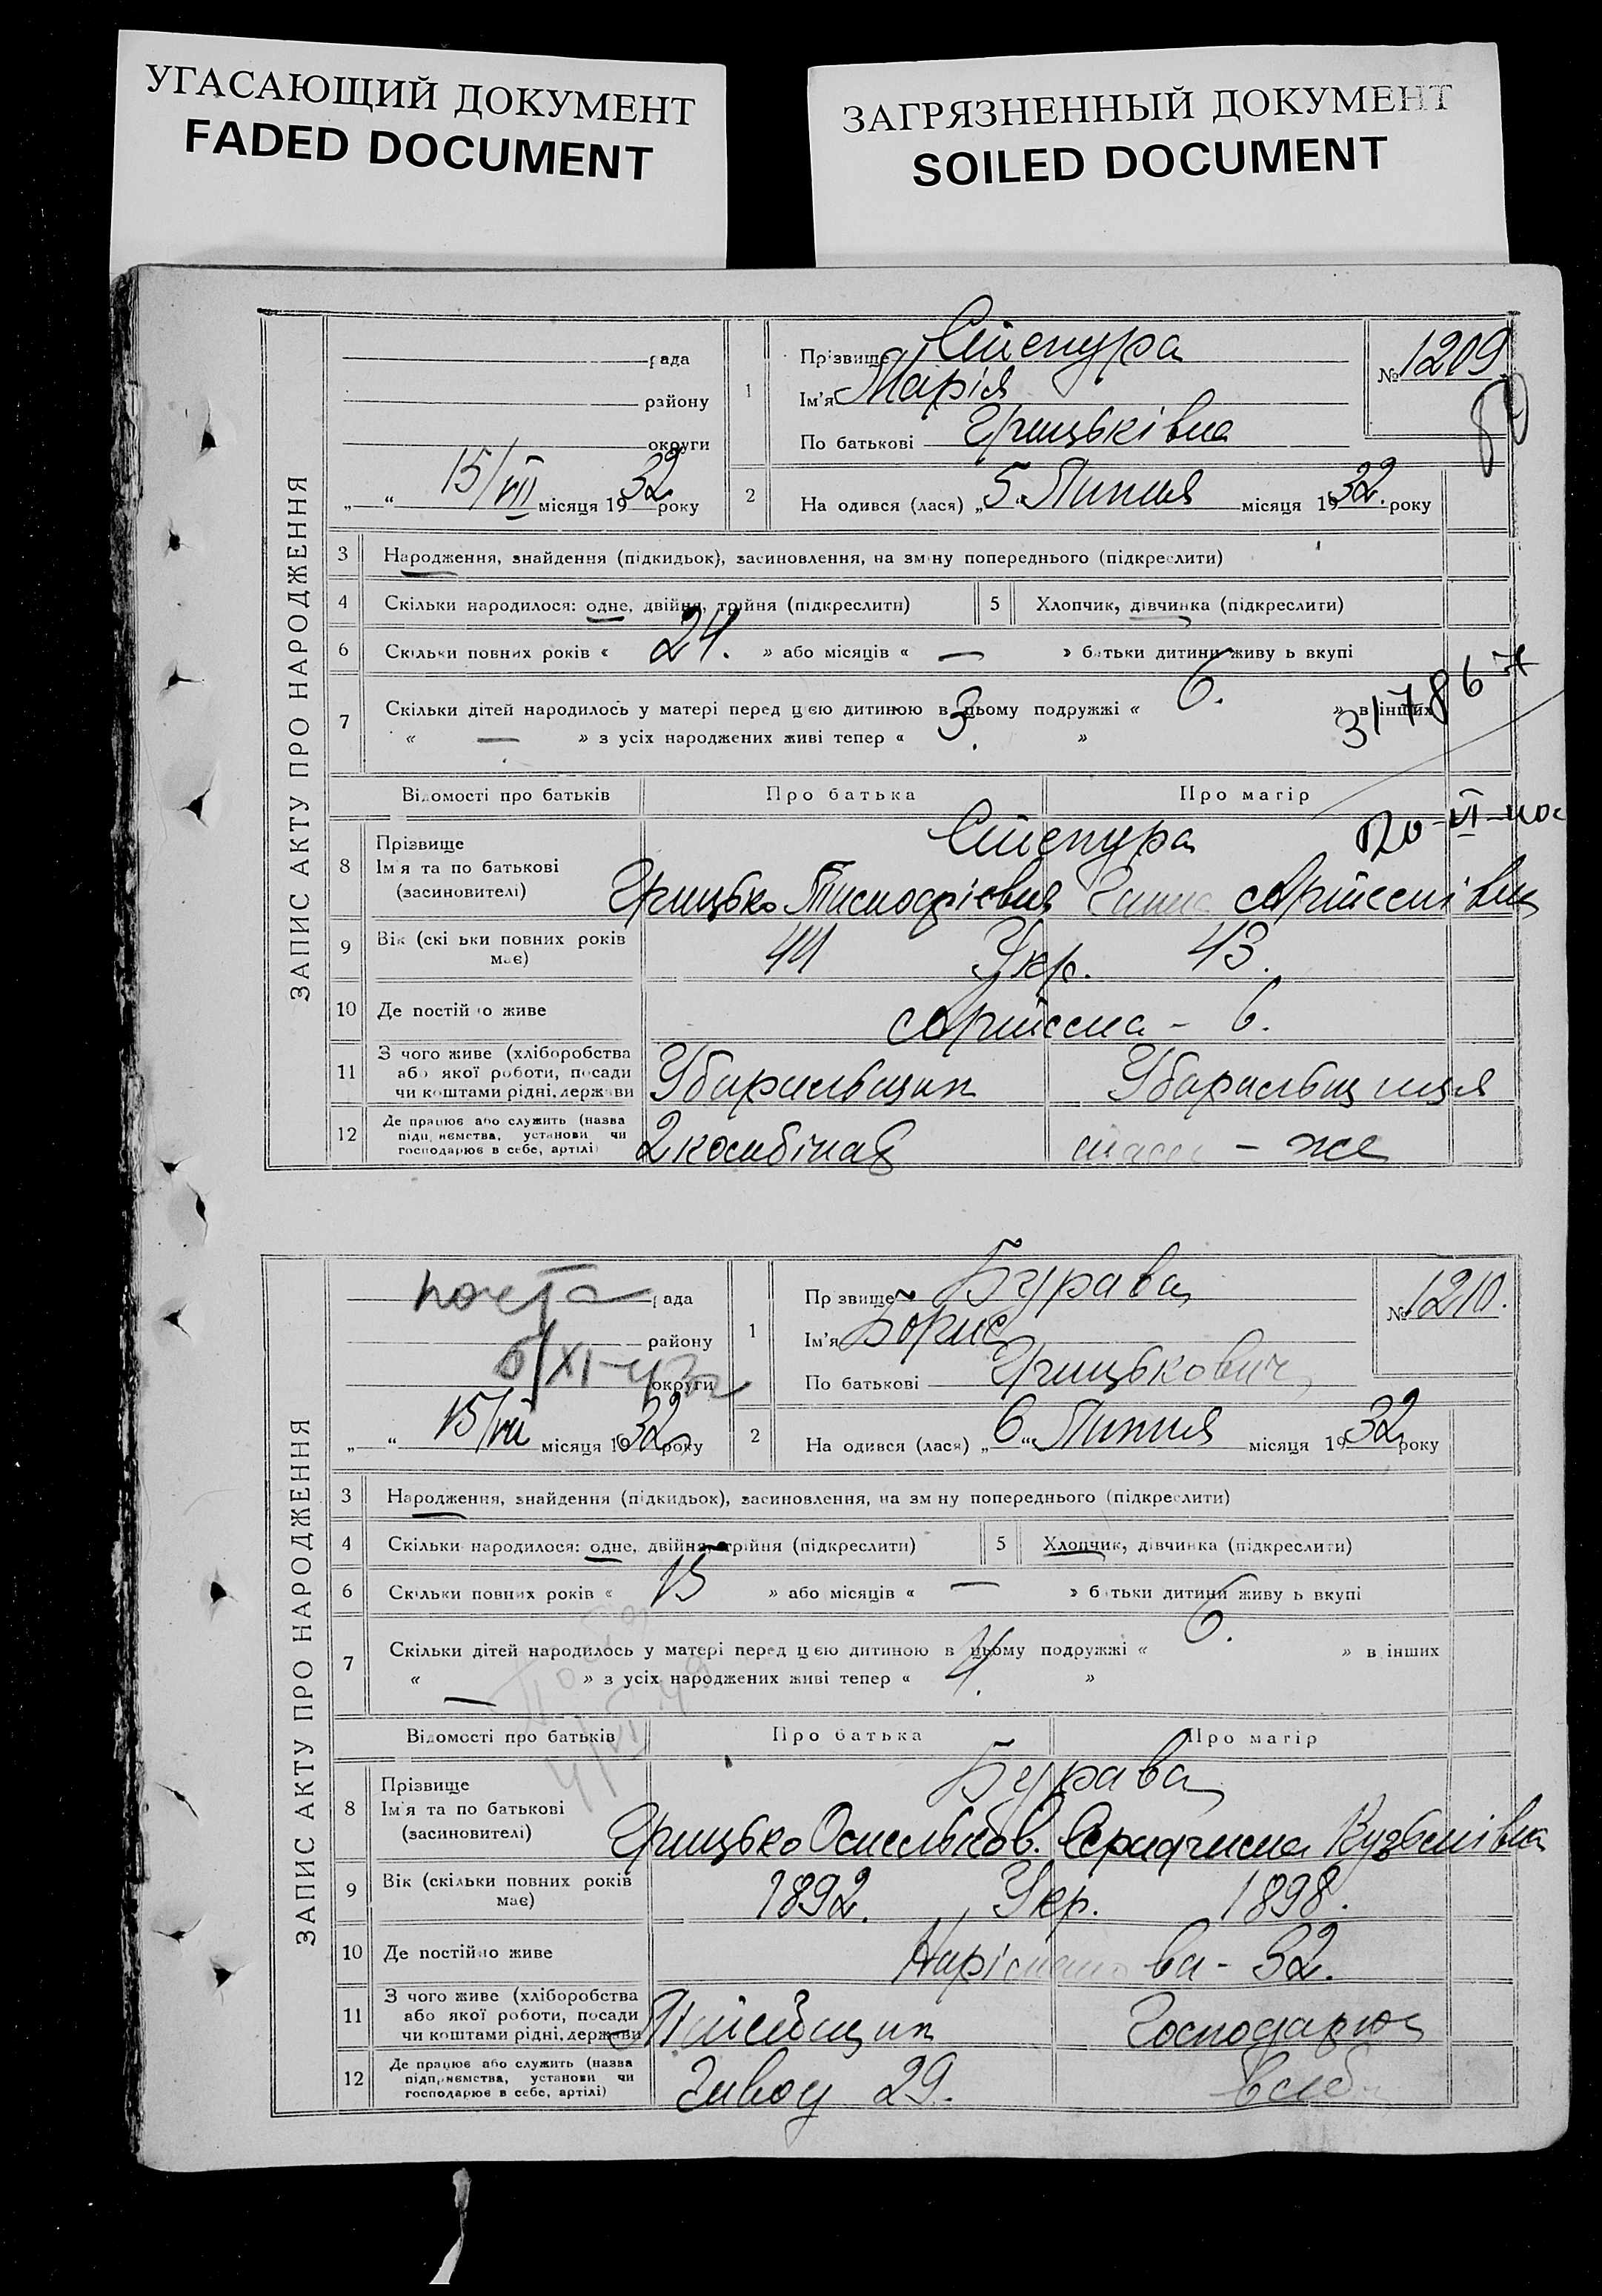 УГАСАЮЩИЙ ДОКУМЕНТ
FADED DOCUMENT
ЗАГРЯЗНЕННЫЙ ДОКУМЕНТ
SOILED DOCUMENT
ЗАПИС АКТУ ПРО НАРОДЖЕННЯ
рада
району
округи
„ “ 15/VII місяця 1932 року
1
Прізвище Степура
Ім'я Марія
По батькові Грицьківна
№ 1209
2
На одився (лася) „5“ Липня місяця 1932. року
3 Народження, знайдення (підкидьок), засиновлення, на зміну попереднього (підкреслити)
4 Скільки народилося: одне, двійня, трійня (підкреслити)
5 Хлопчик, дівчинка (підкреслити)
6 Скільки повних років « 24. » або місяців « — » батьки дитини живу ь вкупі
7 Скільки дітей народилось у матері перед цією дитиною в цьому подружжі « 6. » в інших
« — » з усіх народжених живі тепер « 3. »
317867
Відомості про батьків Про батька Про матір
8 Прізвище
Ім'я та по батькові
(засновителі)
Степура
Грицько Ганна
9 Вік (скі ьки повних років
має)
44 Укр. 43.
10 Де постій о живе
Артема - 6.
11 З чого живе (хліборобства
або якої роботи, посади
чи коштами рідні, держави
Убиральщик
12 Де працює або служить (назва
підприємства, установи чи
господарює в себе, артілі)
2 комбінат
там - же
ЗАПИС АКТУ ПРО НАРОДЖЕННЯ
рада
району
округи
„ “ 15/VII місяця 1932 року
1
Пр звище Бурава
Ім'я Борис
По батькові Грицькович
№ 1210.
2
На одився (лася) „6“ Липня місяця 1932 року
3 Народження, знайдення (підкидьок), засиновлення, на зм ну попереднього (підкреслити)
4 Скільки народилося: одне, двійня, трійня (підкреслити)
5 Хлопчик, дівчинка (підкреслити)
6 Скільки повних років « 15 » або місяців « — » батьки дитини живу ь вкупі
7 Скільки дітей народилось у матері перед цією дитиною в цьому подружжі « 6. » в інших
« — » з усіх народжених живі тепер « 4. »
Відомості про батьків Про батька Про матір
8 Прізвище
Ім'я та по батькові
(засновителі)
Бурава
Грицько Омельков. Кузьмівна
9 Вік (скільки повних років
має)
1892. Укр. 1898.
10 Де постійно живе
Нарiманова - 32.
11 З чого живе (хліборобства
або якої роботи, посади
чи коштами рідні, держави
Господарює
12 Де працює або служить (назва
підприємства, установи чи
господарює в себе, артілі)
Завод 29.